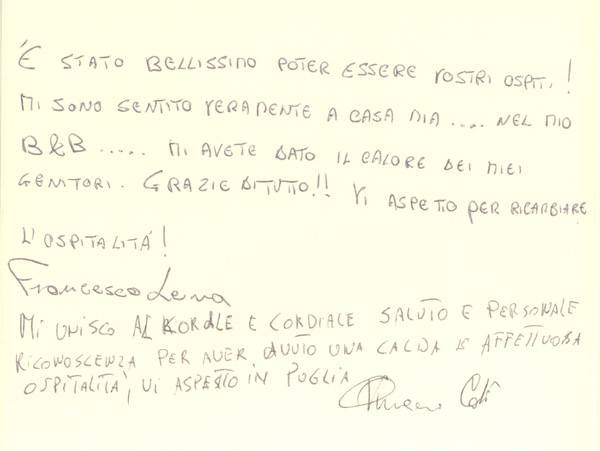 È STATO BELLISSIMO POTER ESSERE VOSTRI OSPITI!
MI SONO SENTITO VERAMENTE A CASA MIA .... NEL MIO
B&B ..... MI AVETE DATO IL CALORE DEI MIEI
GENITORI. GRAZIE DI TUTTO!! VI ASPETTO PER RICAMBIARE
L'OSPITALITÁ!
Francesco Lena
MI UNISCO AL E CORDIALE SALUTO E PERSONALE
RICONOSCENZA PER AVER AVUTO UNA CALDA E AFFETTUOSA
OSPITALITÀ, VI ASPETTO IN PUGLIA